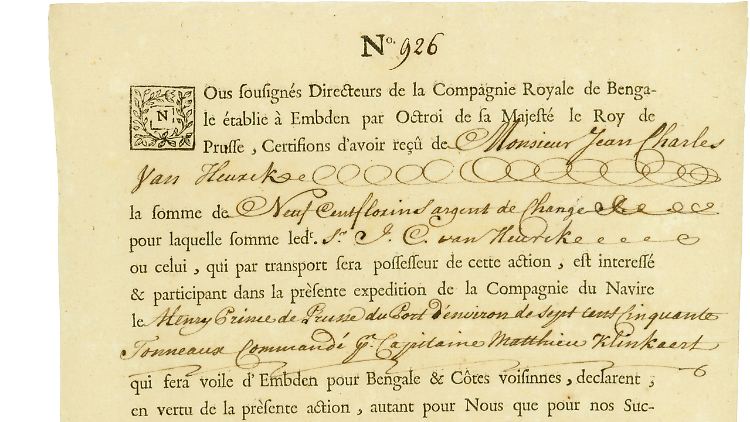 No. 926
NOus sousignés Directeurs de la Compagnie Royale de Benga-
le établie à Embden par Octroi de sa Majesté le Roy de
Prusse, Certifions d'avoir reçû de Monsieur Jean Charles
Van Heurck
la somme de Neuf Cent florins argent de Change
pour laquelle somme ledt. Sr. J. C. van Heurck
ou celui, qui par transport sera possesseur de cette action, est interessé
& participant dans la prèsente expedition de la Compagnie du Navire
le Henry Prince de Prusse du Port d'environ de sept cent Cinquante
Tonneaux Commandé pr. Capitaine Matthieu Klinkaert
qui fera voile d'Embden pour Bengale & Côtes voisinnes, declarent,
en vertu de la prèsente action, autant pour Nous que pour nos Suc-